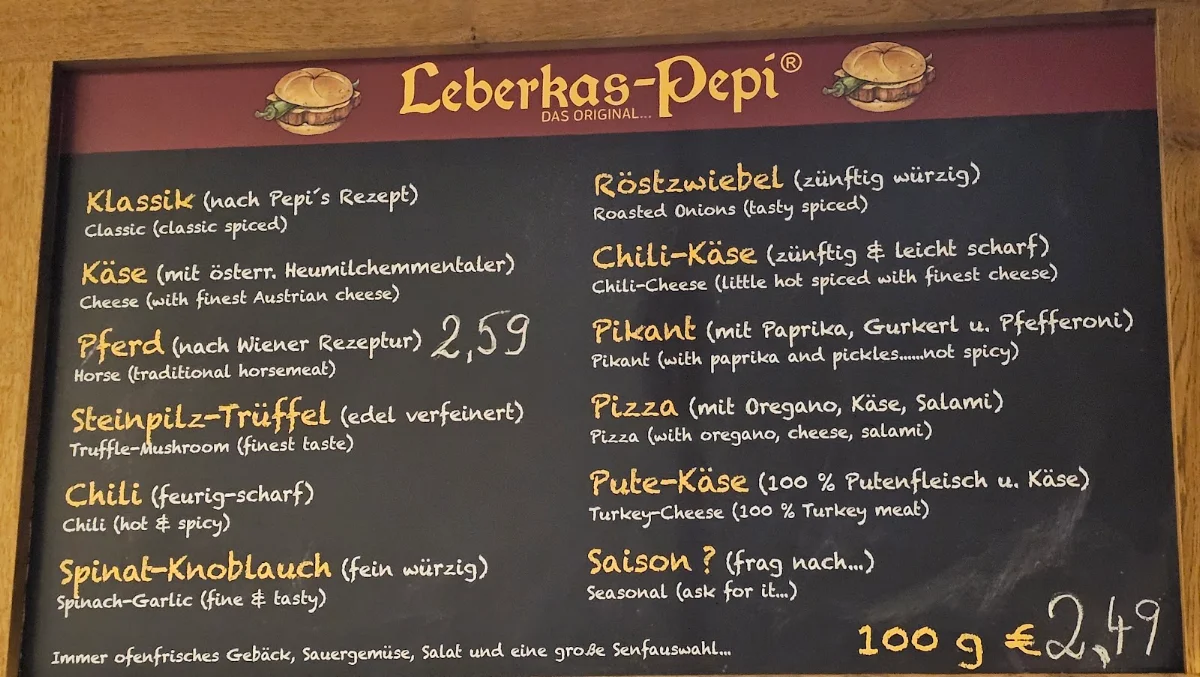 Leberkas-Pepi®
DAS ORIGINAL...
Klassik (nach Pepi´s Rezept)
Classic (classic spiced)
Käse (mit österr. Heumilchemmentaler)
Cheese (with finest Austrian cheese)
Pferd (nach Wiener Rezeptur) 2,59
Horse (traditional horsemeat)
Steinpilz-Trüffel (edel verfeinert)
Truffle-Mushroom (finest taste)
Chili (feurig-scharf)
Chili (hot & spicy)
Spinat-Knoblauch (fein würzig)
Spinach-Garlic (fine & tasty)
Röstzwiebel (zünftig würzig)
Roasted Onions (tasty spiced)
Chili-Käse (zünftig & leicht scharf)
Chili-Cheese (little hot spiced with finest cheese)
Pikant (mit Paprika, Gurkerl u. Pfefferoni)
Pikant (with paprika and pickles......not spicy)
Pizza (mit Oregano, Käse, Salami)
Pizza (with oregano, cheese, salami)
Pute-Käse (100 % Putenfleisch u. Käse)
Turkey-Cheese (100 % Turkey meat)
Saison ? (frag nach...)
Seasonal (ask for it...)
Immer ofenfrisches Gebäck, Sauergemüse, Salat und eine große Senfauswahl...
100 g € 2,49